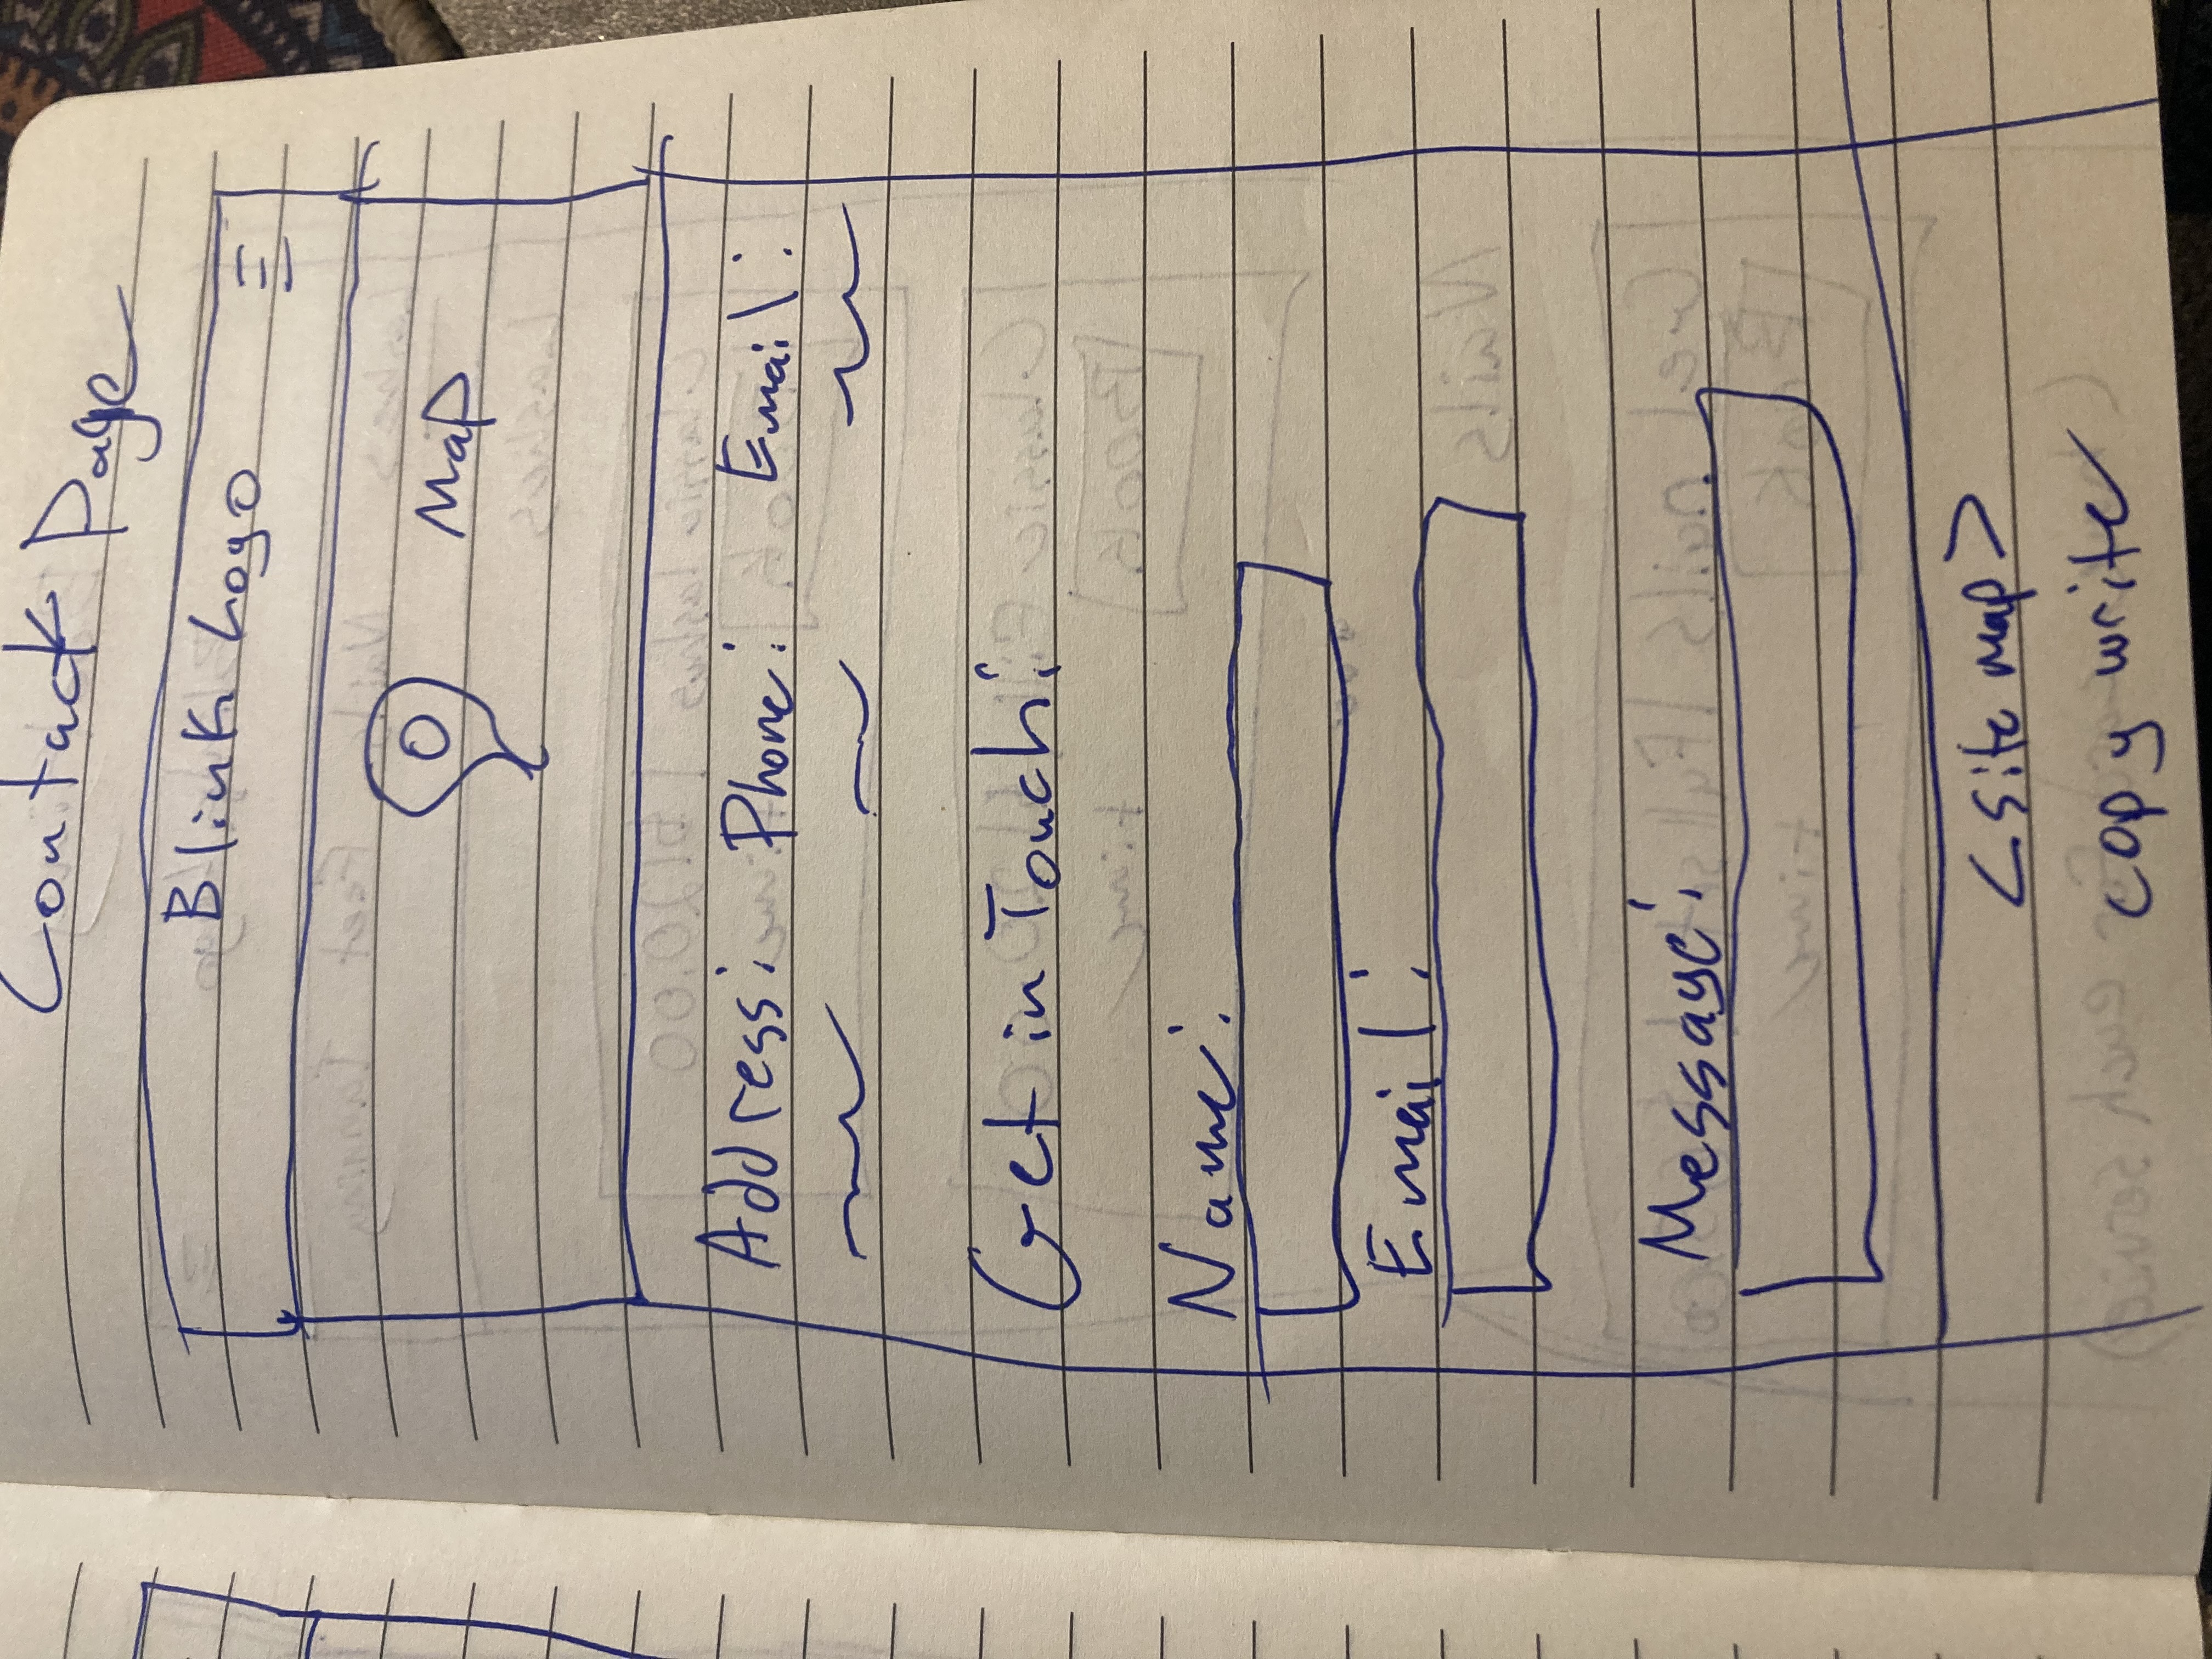 Contact Page
Blink Logo
Map
Address: Phone: Email:
Get in Touch:
Name:
Email:
Message:
<site map>
copy write